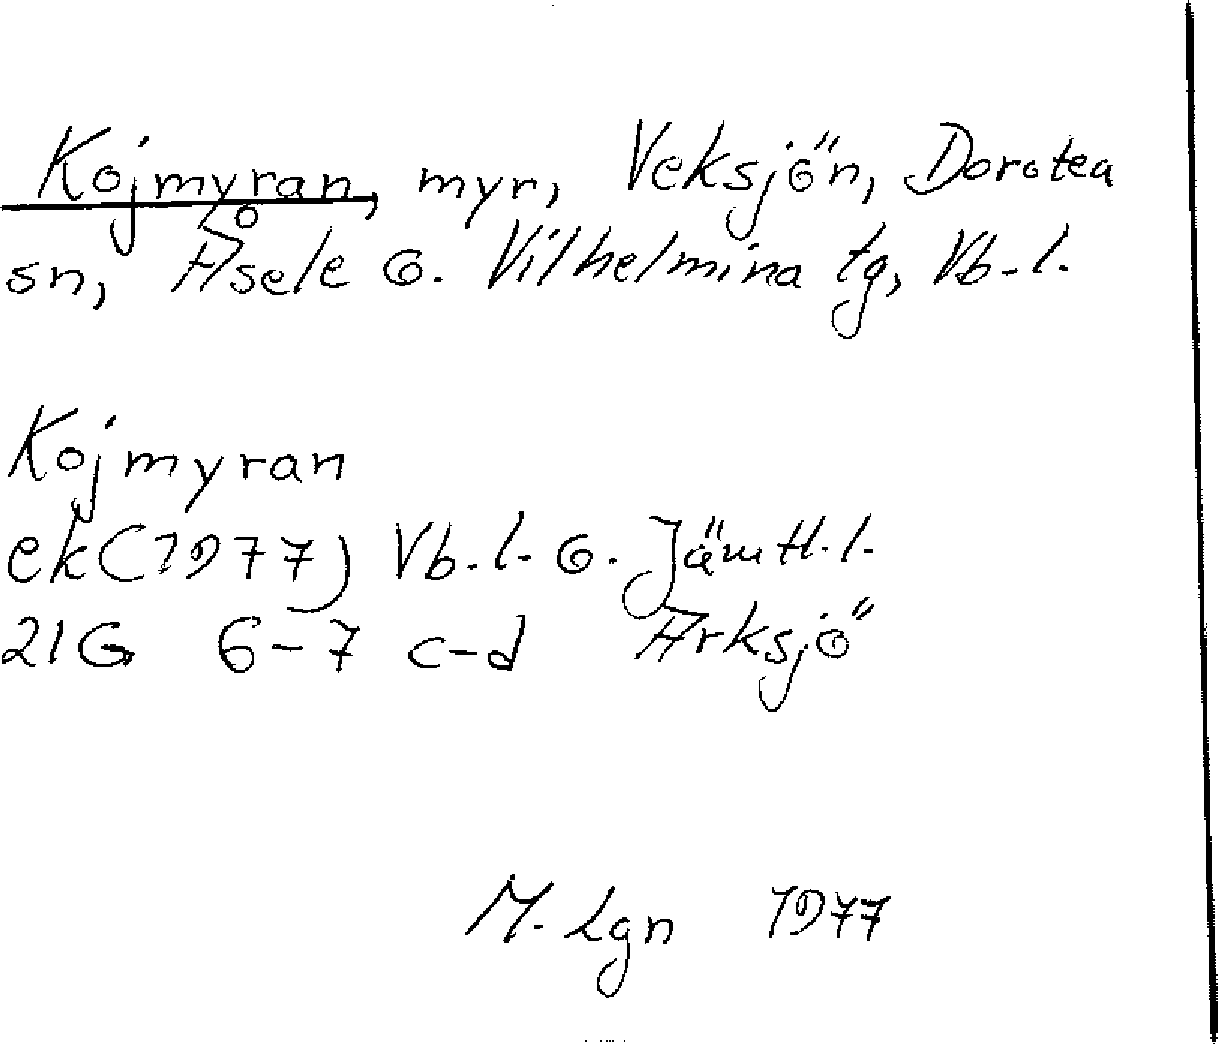 Kojmyran, myr, Veksjön, Dorotea
sn, Åsele o. Vilhelmina tg, Vb-l.
Kojmyran
ek(1977) Vb.l. o. Jämtl.l.
21G 6-7 c-d Arksjö
M. Lgn 1977